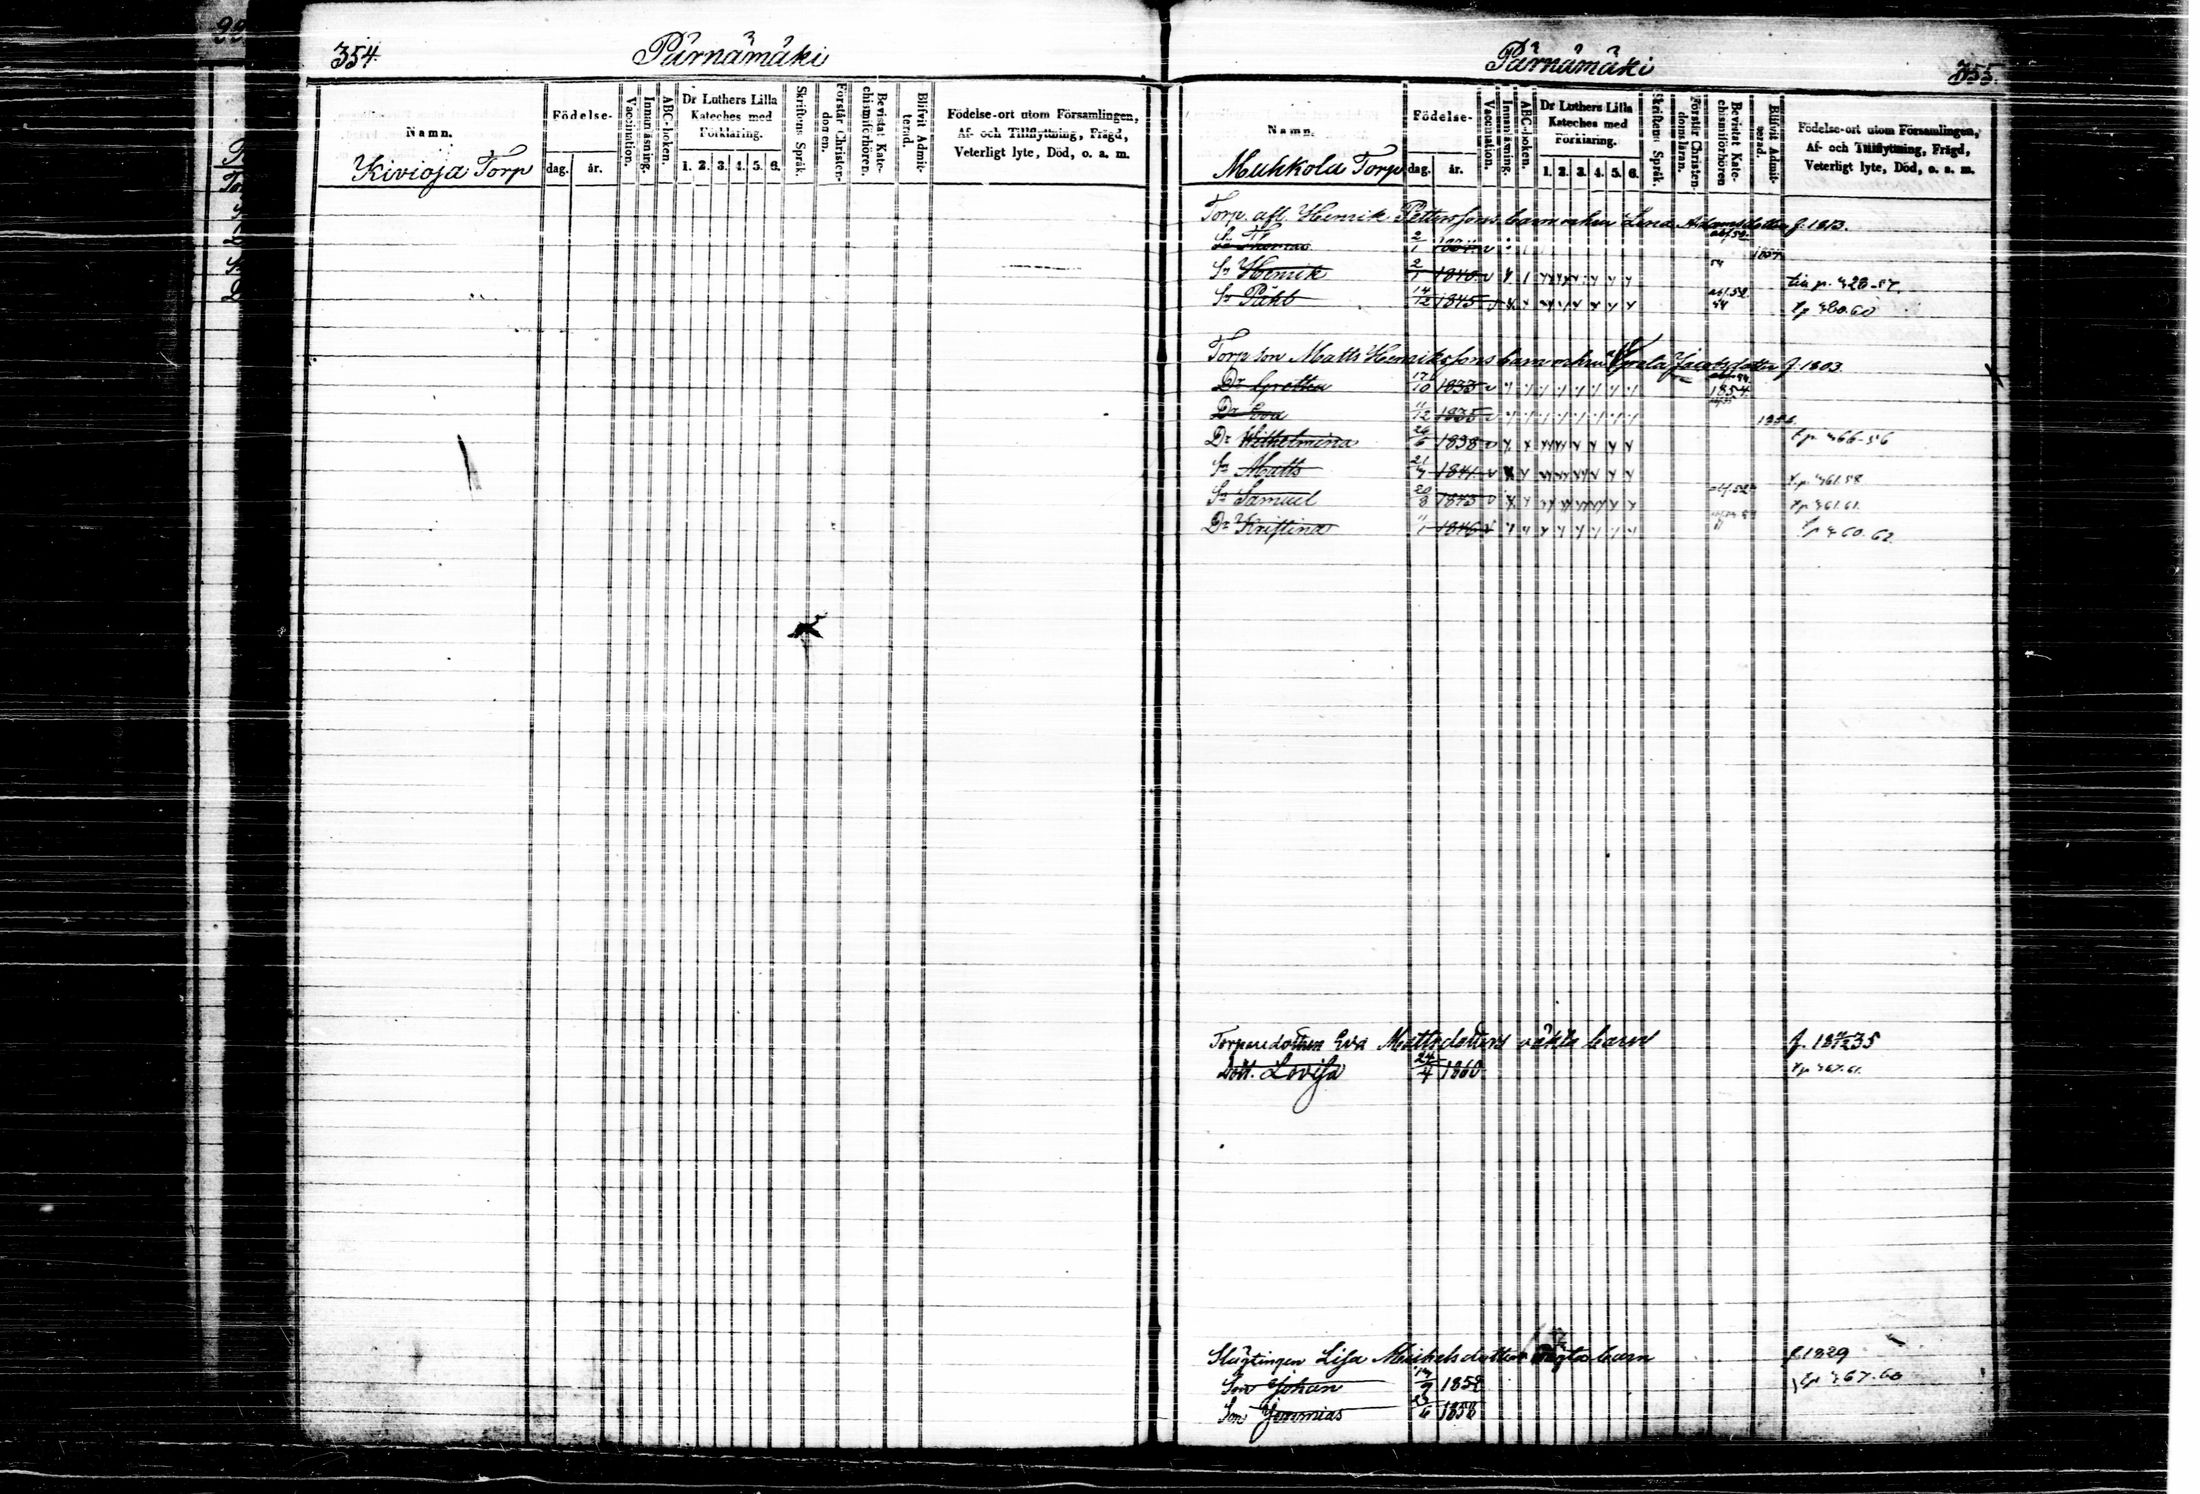 354.
Pärnämäki
Namn.
Födelse-
dag.
år.
Vaccination.
Innanläsning.
ABC-boken.
Dr Luthers Lilla
Kateches med
Förklaring.
1. 2. 3. 4. 5. 6.
Skriftens Språk.
Förstår Christen-
domen.
Bevistat Kate-
chismiförhören.
Blifvit Admit-
terad.
Födelse-ort utom Församlingen,
Af- och Tillflyttning, Frägd,
Veterligt lyte, Död, o. a. m.
Kivioja Torp
Pärnämäki
355.
Namn.
Födelse-
dag.
år.
Vaccination.
Innanläsning.
ABC-boken.
Dr Luthers Lilla
Kateches med
Förklaring.
1. 2. 3. 4. 5. 6.
Skriftens Språk.
Förstår Christen-
domsläran.
Bevistat Kate-
chismiförhören
Blifvit Admit-
terad.
Födelse-ort utom Församlingen,
Af- och Tillflyttning, Frägd,
Veterligt lyte, Död, o. a. m.
Muhkola Torp
Torp. afl. Henrik Petterssons barn enkan Lena Adamsdotter f. 1813.
Sn Thomas 2/1
Sn Henrik 2/1 1840 54 till p. 428-57.
Sn Påhl 14/12 1845 54 t.p 480.60
Torp. son Matts Henrikssons barn enkan Jacobsdotter f. 1803.
Dr Gretha 17/10 1833 1854
Dr Eva 11/12 1835
Dr Wilhelmina 26/6 1838 t.p. 466-56
Sn Matts 21/4 1841 t.p. 461.58
Sn Samuel 20/8 1843 t.p 461.61.
Dr Kristina 11/1 1846 t.p 460.62.
Torparedottren Eva Mattsdotters oäkta barn f. 18 11/12 35
Dott. Lovisa 24/4 1860 t.p 467.61.
Slägtingen Lisa Michelsdotters barn f. 1829
Son Johan 17/9 1852 t.p 467.60
Son Jeremias 23/6 1858